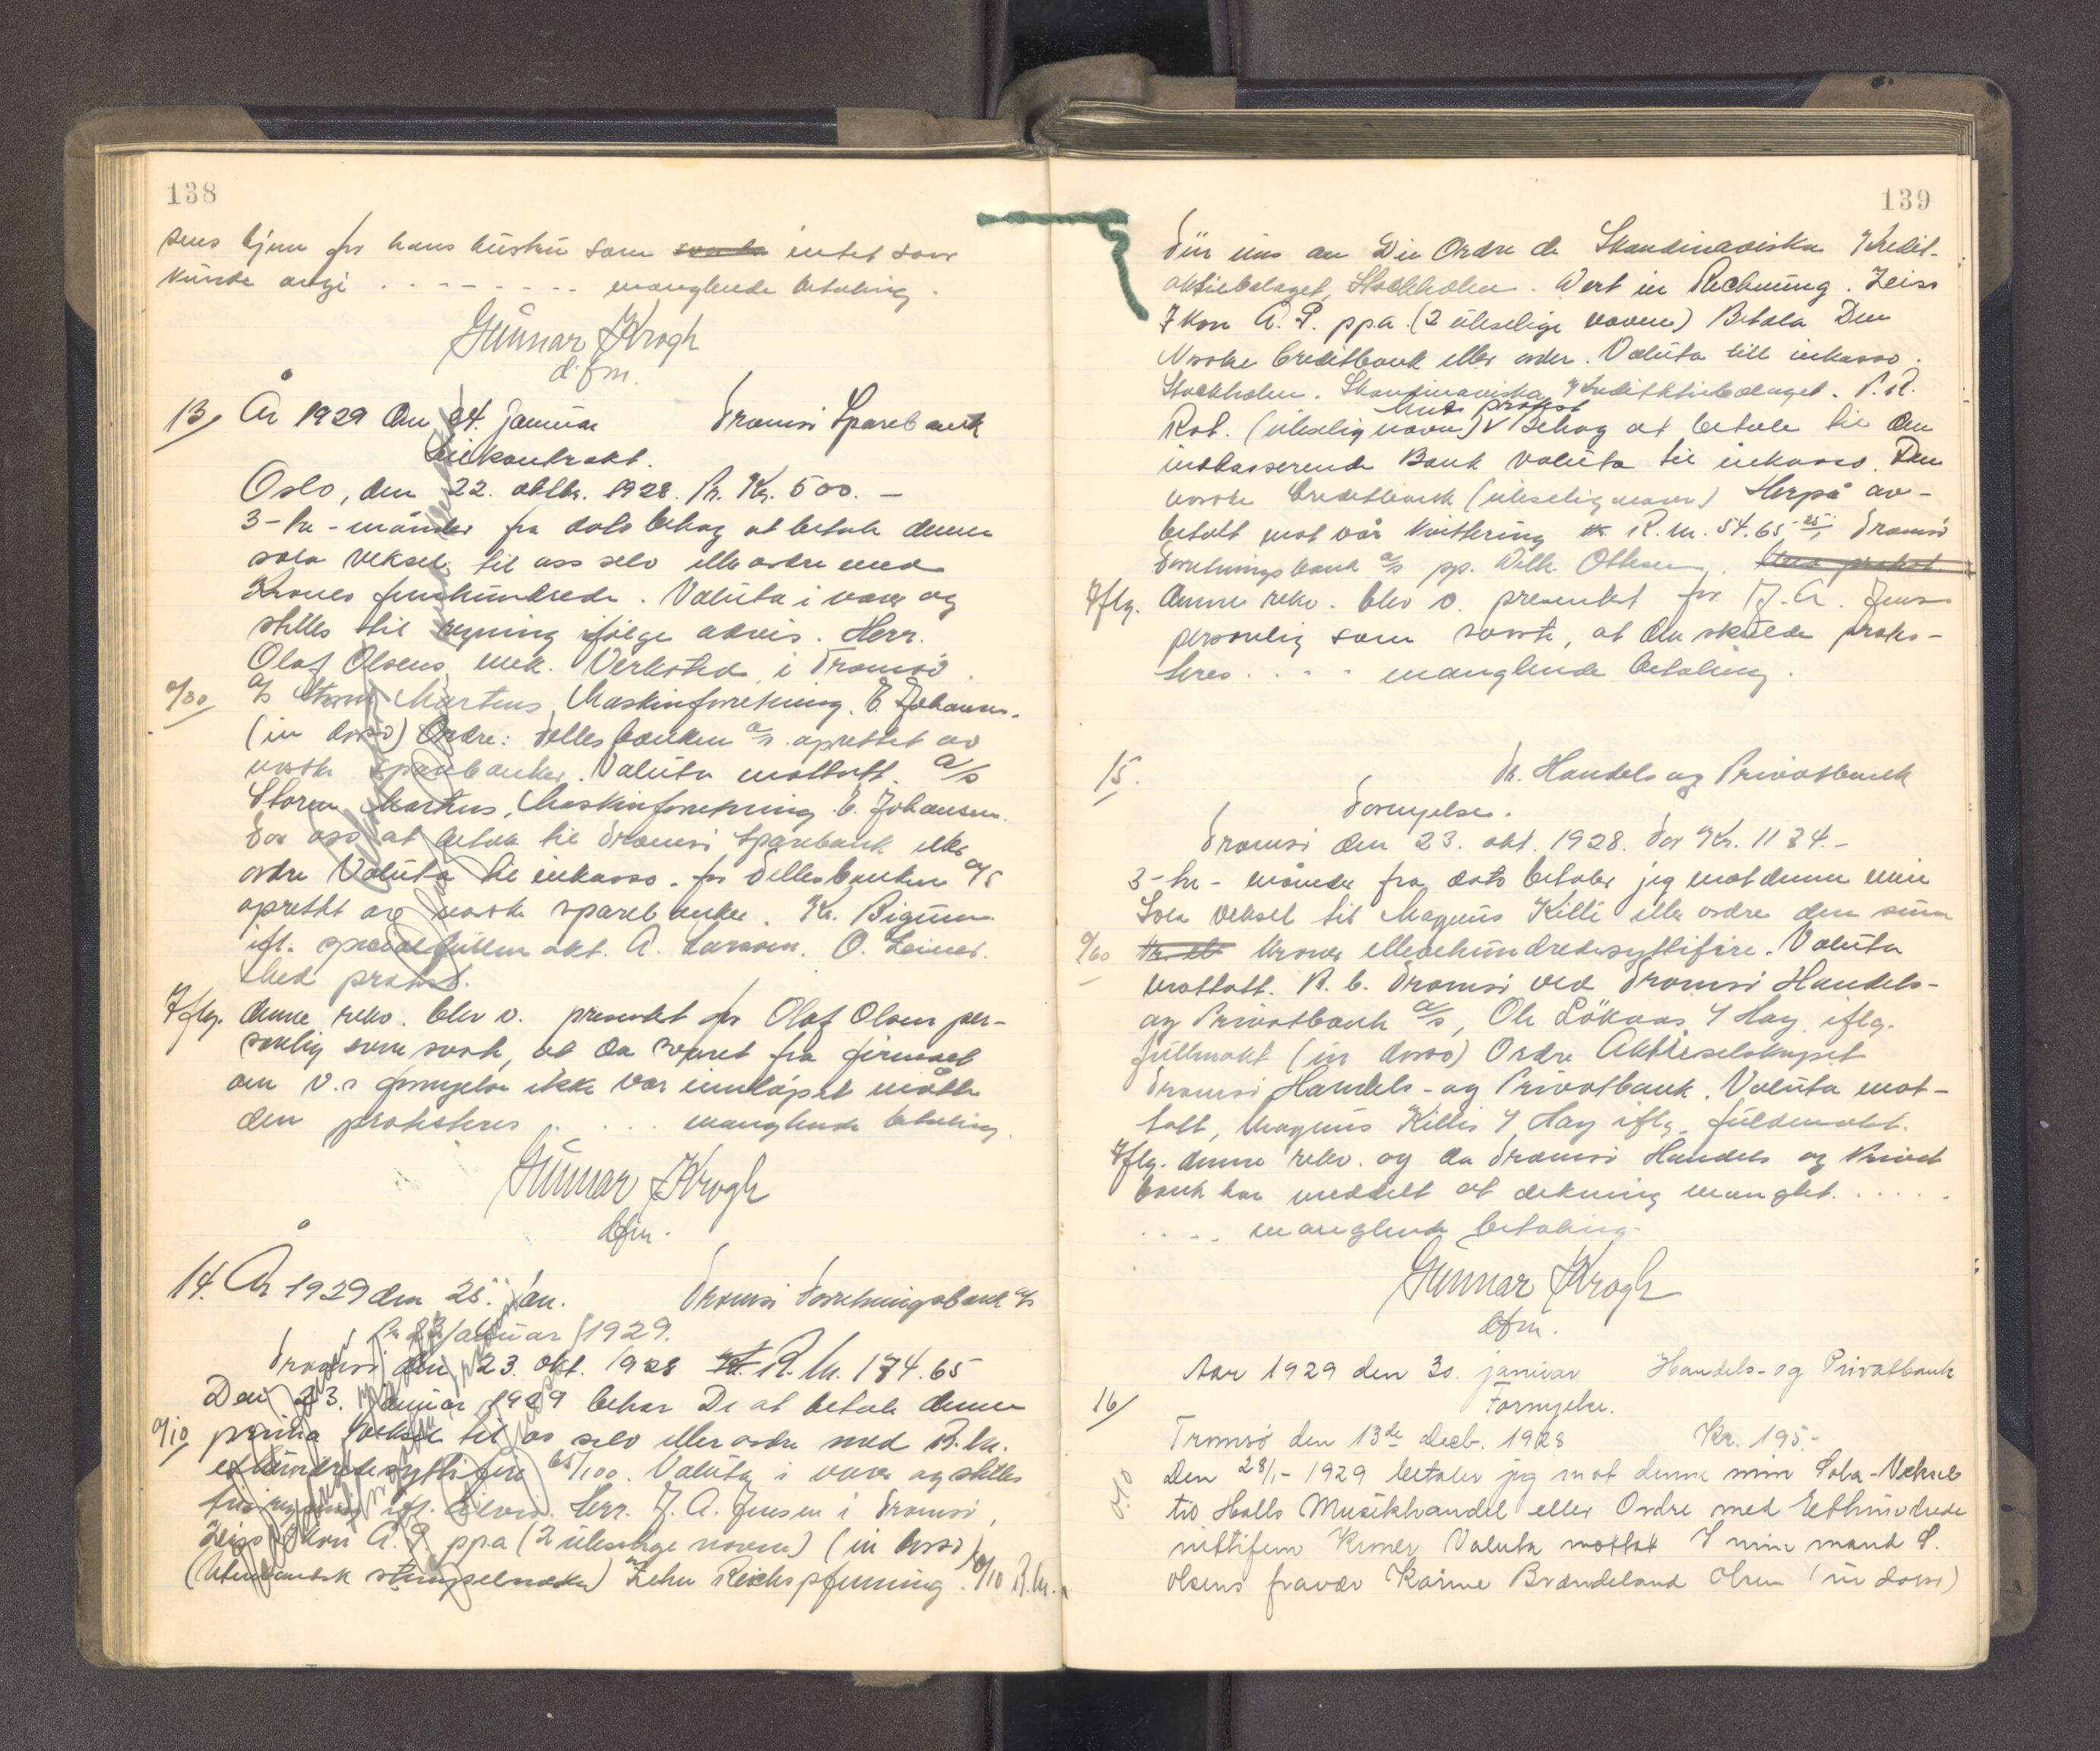 138
sens hjem for hans hustru som intet svar
kunde avgi . . . . . . . . . manglende betaling.
Gunnar Krogh
dfm.
13/ År 1929 den 24. januar Tromsø Sparebank
Oslo, den 22. oktbr. 1928. Pr. Kr. 500.-
3-tre-måneder fra dato behag at betale denne
sola veksel til oss selv eller ordre med
Kroner femhundrede. Valuta i varer og
stilles til regning ifølge advis. Herr.
Olaf Olsens mek. Verksted i Tromsø.
0/30 a/s Storm Martens Maskinforretning. E. Johansen.
(in dorso) Ordre: Fellesbanken a/s oprettet av
norske sparebanker. Valuta mottatt. A/S
Storm Martens, Maskinforretning E. Johansen.
For oss at betale til Tromsø Sparebank eller
ordre Valuta til inkasso. for Fellesbanken a/s
oprettet av norske sparebanker. Kr. Bigum
ifl. specialfullmakt. A. Larsen. O. Leiner.
Med protest.
Iflg. denne rekv. blev v. presentert for Olaf Olsen per-
sonlig som svarte, at da svaret fra firmaet
om v.s fornyelse ikke var innløpet måtte
den protesteres . . . . manglende betaling.
Gunnar Krogh
dfm.
14. År 1929 den 25. jan. Tromsø Forretningsbank a/s
Pr 23/januar 1929.
Tromsø den 23. okt. 1928 R.M. 174.65
Den 23. januar 1929 behar De at betale denne
0/10 prima veksel til os selv eller ordre med R.M.
ethundredesyttifire 65/100. Valuta i varer og stilles
til regning ifl. advis. Herr. J. A. Jensen i Tromsø,
Zeiss Ikon A. G. ppa (2 uleselige navne) (in dorso)
(Utenlandsk stempelmerke) Zehn Reichspfenning. 0/10 R.M.
139
Für uns an Die Ordre de Skandinaviska Kredit-
aktiebolaget, Stockholm. Wert in Rechnung. Zeiss
Ikon A. G. ppa. (2 uleselige navne) Betala Den
Norske Creditbank eller order. Valuta till inkasso.
Stockholm. Skandinaviska Kreditaktiebolaget. P. A.
Uten protest
Rob. (uleselig navn) V Behag at betale til den
indkasserende Bank valuta til inkasso. Den
norske Creditbank (uleselig navn) Herpå av-
betalt mot vår kvittering R.M. 54.65 Tromsø
Forretningsbank a/s pp. Wilh. Ottesen.
Iflg. denne rekv. blev v. presentert for J. A. Jensen
personlig som svarte, at den skulde protes-
teres . . . . manglende betaling.
15. Tr. Handels og Privatbank
Fornyelse.
Tromsø den 23. okt. 1928. For Kr. 1174.-
3-tre- måneder fra dato betaler jeg mot denne min
Sola veksel til Magnus Killi eller ordre den sum
0/60 kroner ellevehundredesyttifire. Valuta
mottatt. A. C. Tromsø ved Tromsø Handels-
og Privatbank a/s, Ole Løkaas Y Hay iflg.
fullmakt (in dorso) Ordre Aktieselskapet
Tromsø Handels- og Privatbank. Valuta mot-
tatt, Magnus Killi Y Hay iflg. fuldmakt.
Iflg. denne rekv. og da Tromsø Handels og Privat
bank har meddelt at dekning manglet . . . . .
. . . . manglende betaling.
Gunnar Krogh
dfm.
Aar 1929 den 30. januar Handels- og Privatbank
16/ Fornyelse.
Tromsø den 13de decb. 1928 Kr. 195.-
0.10 Den 28/1- 1929 betaler jeg mot denne min Sola-Veksel
til Halls Musikhandel eller Ordre med Ethundrede
nittifem Kroner Valuta mottat I min mand S.
Olsens fravær Karine Brændeland Olsen (in dorso)